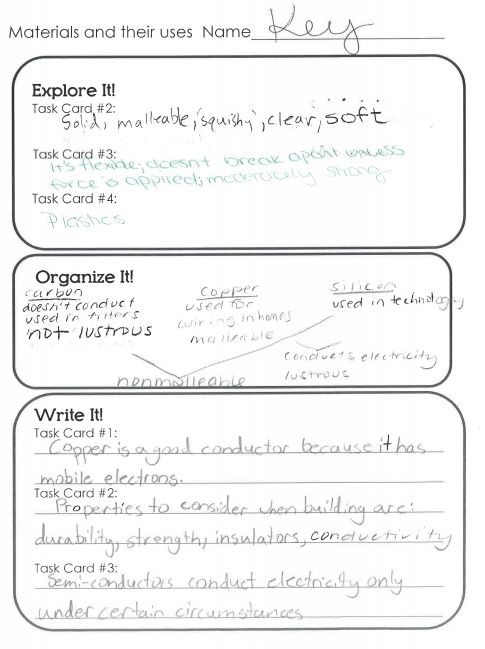 Materials and their uses Name Key
Explore It!
Task Card #2:
Solid, malleable, 'squishy', clear, soft
Task Card #3:
It's flexible; doesnt break apart unless
force is applied; moderately strong
Task Card #4:
Plastics
Organize It!
carbon
doesn't conduct
used in filters
not lustrous
copper
used for
wiring in homes
malleable
silicon
used in technology
conducts electricity
lustrous
nonmalleable
Write It!
Task Card #1:
Copper is a good conductor because it has
mobile electrons.
Task Card #2:
Properties to consider when building are:
durability, strength, insulators, conductivity
Task Card #3:
Semi-conductors conduct electricity only
under certain circumstances